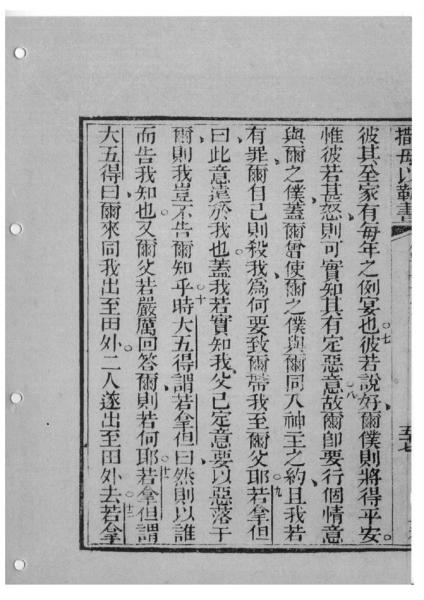 撒母以勒書 五十七
彼其至家有每年之例宴也七彼若說好爾僕則將得平安
惟彼若甚怒則可實知其有定惡意八故爾卽要行個情意
與爾之僕蓋爾曾使爾之僕與爾同入神主之約且我若
有罪爾自己則殺我爲何要致爾帶我至爾父耶九若拿但
曰此意遠於我也蓋我若實知我父已定意要以惡落于
爾則我豈不告爾知乎十時大五得謂若拿但曰然則以誰
而告我知也又爾父若嚴厲回答爾則若何耶十一若拿但謂
大五得曰爾來同我出至田外二人遂出至田外去十二若拿